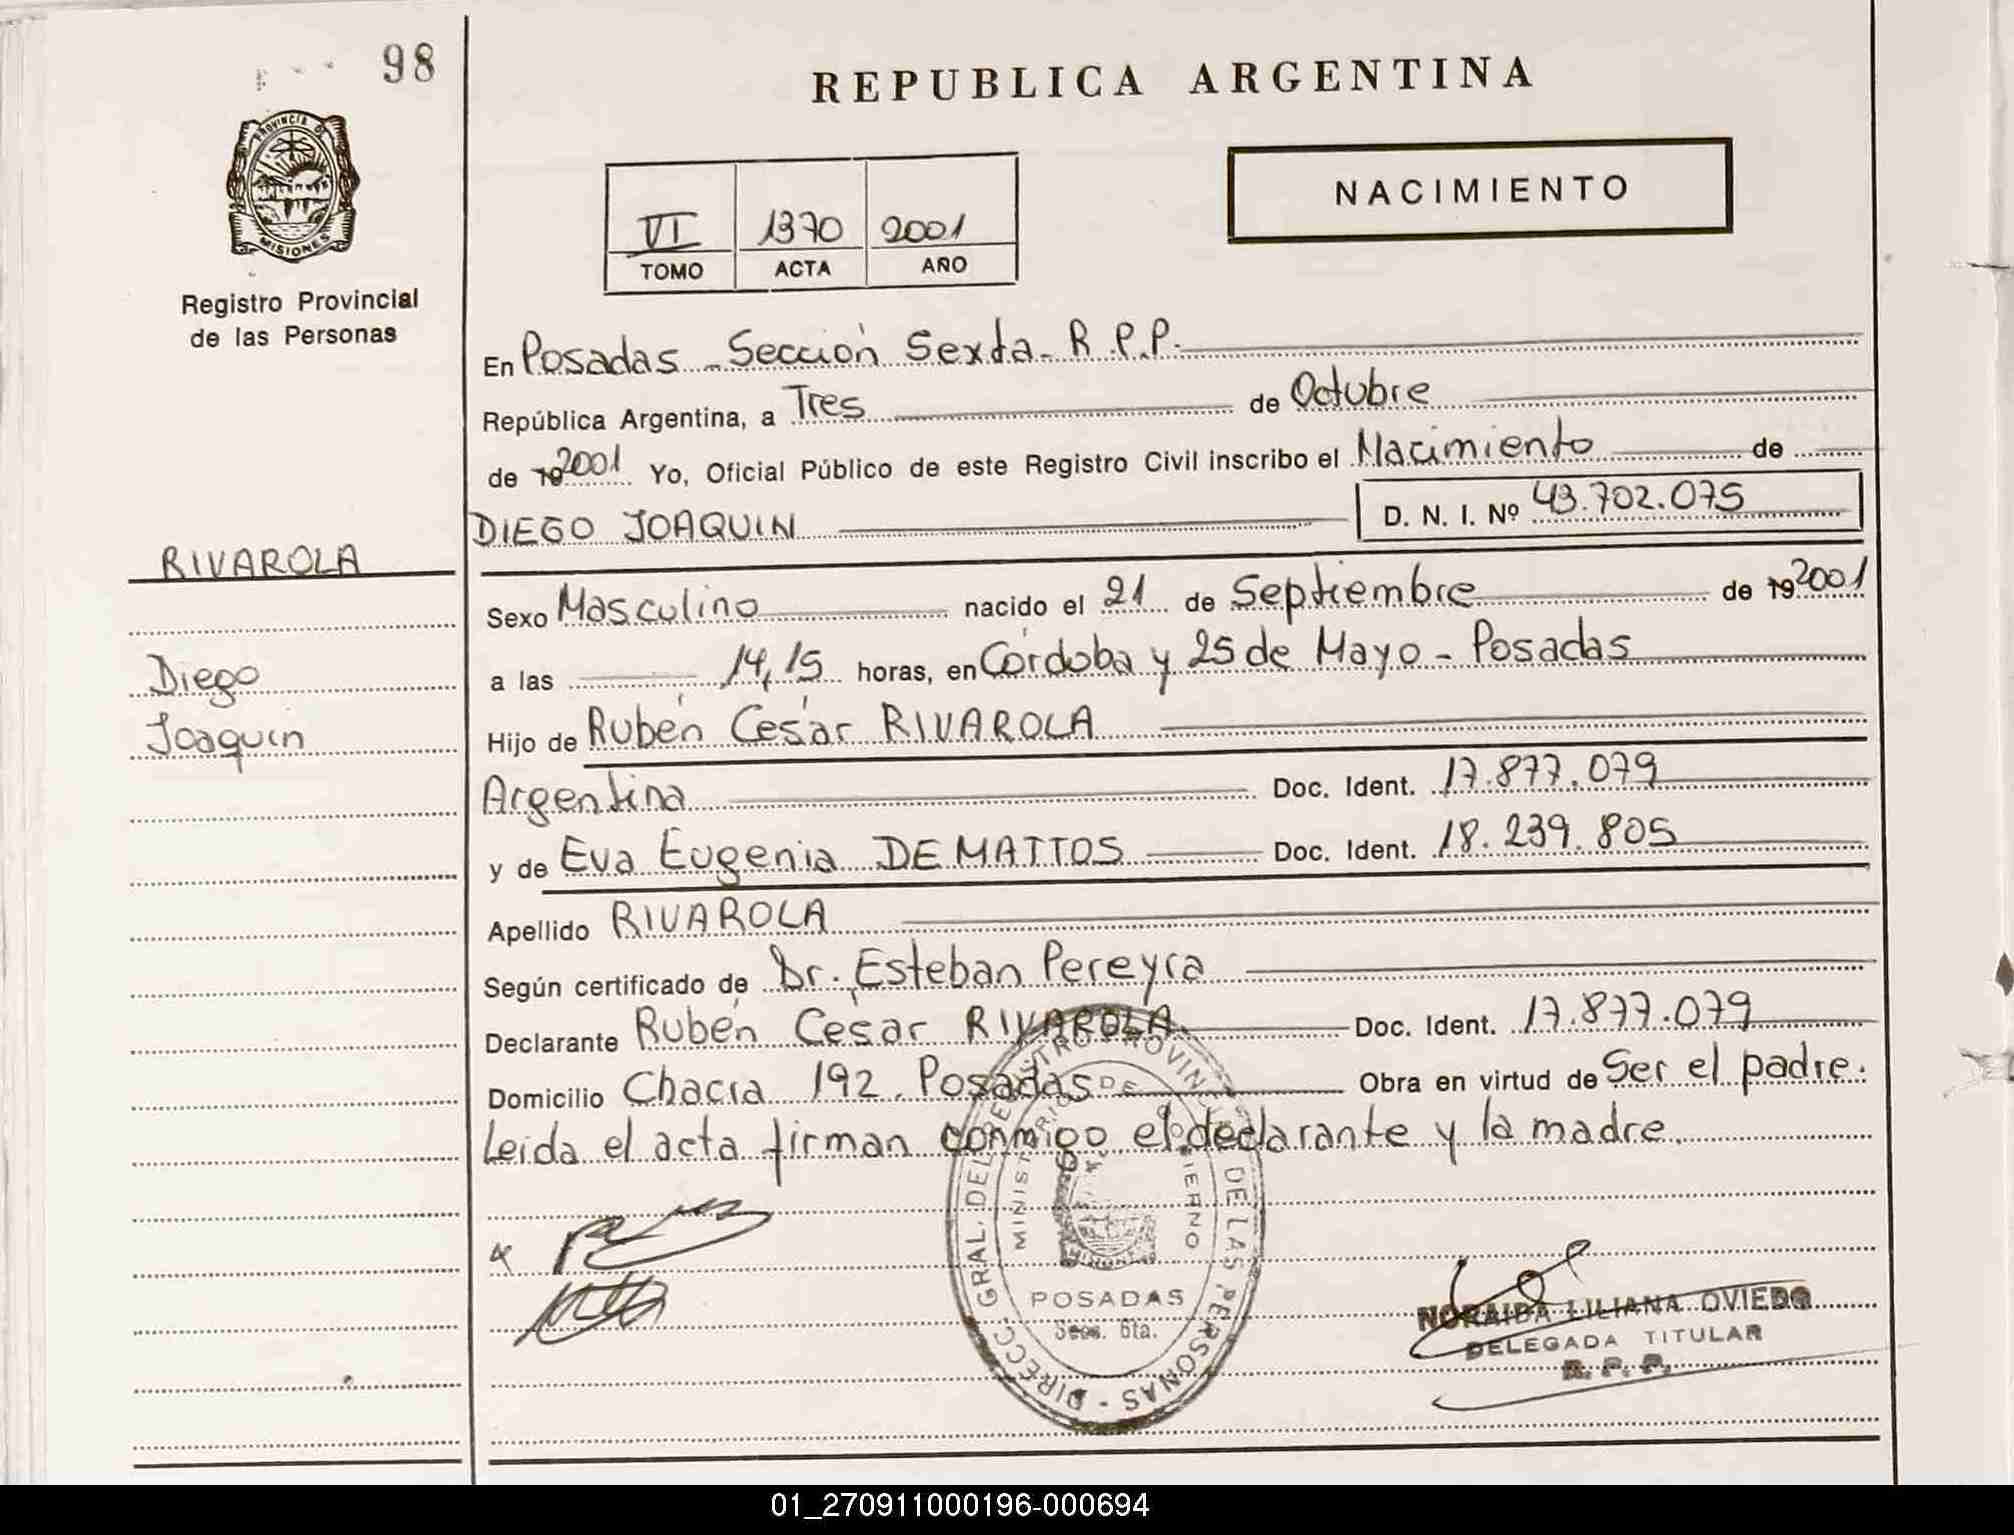 98
PROVINCIA DE
MISIONES
Registro Provincial
de las Personas
RIVAROLA
Diego
Joaquin
REPUBLICA ARGENTINA
NACIMIENTO
VI 1370 2001
TOMO ACTA AÑO
En Posadas - Sección Sexta - R.P.P.
República Argentina, a Tres de Octubre
de 19 2001 Yo, Oficial Público de este Registro Civil inscribo el Nacimiento de
DIEGO JOAQUIN D. N. I. Nº 43.702.075
Sexo Masculino nacido el 21 de Septiembre de 19 2001
a las 14,15 horas, en Córdoba y 25 de Mayo - Posadas
Hijo de Rubén César RIVAROLA
Argentina Doc. Ident. 17.877.079
y de Eva Eugenia DE MATTOS Doc. Ident. 18.239.805
Apellido RIVAROLA
Según certificado de Dr. Esteban Pereyra
Declarante Rubén César RIVAROLA Doc. Ident. 17.877.079
Domicilio Chacra 192. Posadas Obra en virtud de Ser el padre.
Leída el acta firman conmigo el declarante y la madre.
DIRECC. GRAL. DEL REGISTRO PROVINCIAL DE LAS PERSONAS -
MINISTERIO DE GOBIERNO
POSADAS
Secc. 6ta.
NORAIDA LILIANA OVIEDO
DELEGADA TITULAR
R. P. P.
01_270911000196-000694